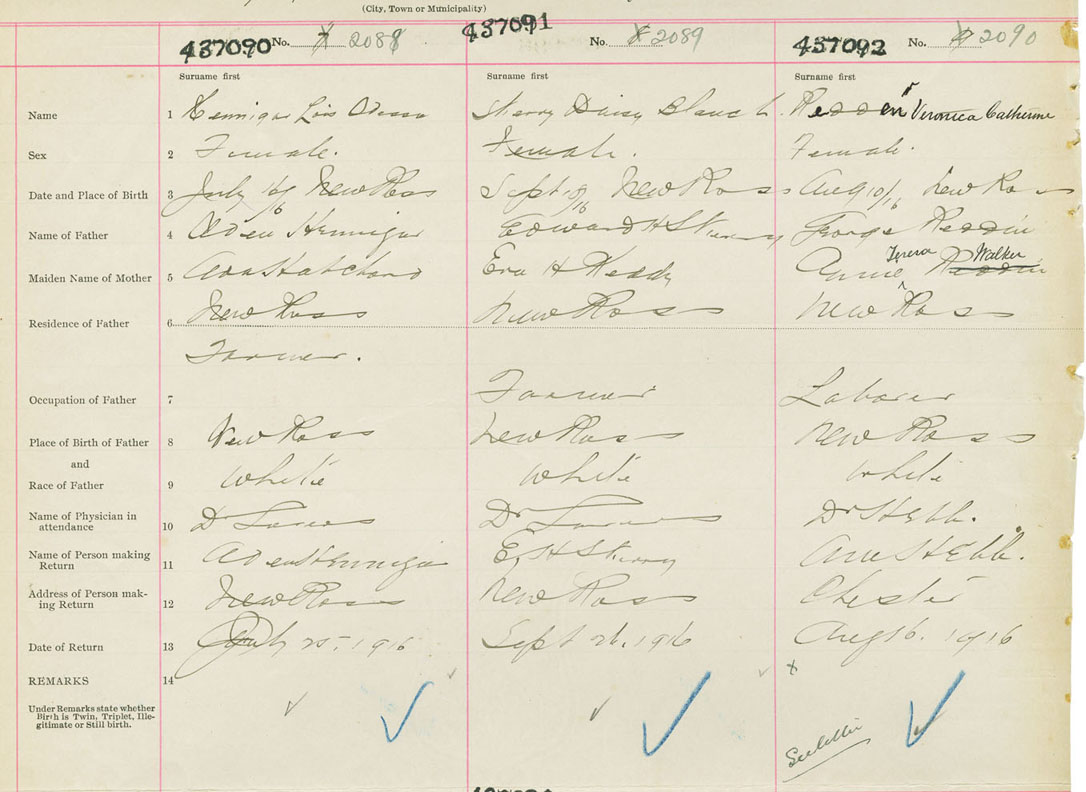 (City, Town or Municipality)
437090 No. 2088 437091 No. 2089 437092 No. 2090
Surname first Surname first Surname first
Name 1 Hennigar Lois Sherry Daisy Blanch Redden Veronica Catherine
Sex 2 Female. Female. Female.
Date and Place of Birth 3 July New Ross Sept 10/16 New Ross Aug 10/16 New Ross
Name of Father 4 Aden Hennigar Edward H Sherry George Reddin
Maiden Name of Mother 5 Ada Hatchard Eva H Keddy Annie Teresa Reddin Walker
Residence of Father 6 New Ross New Ross New Ross
Farmer.
Occupation of Father 7 Farmer Laborer
Place of Birth of Father 8 New Ross New Ross New Ross
and
Race of Father 9 White White White
Name of Physician in
attendance 10 Dr Dr Dr Hebb.
Name of Person making
Return 11 Aden Hennigar E H Sherry Hebb.
Address of Person mak-
ing Return 12 New Ross New Ross Chester
Date of Return 13 July 25 - 1916 Sept 26. 1916 Aug 16. 1916
REMARKS 14 x
Under Remarks state whether
Birth is Twin, Triplet, Ille-
gitimate or Still birth.
See letter